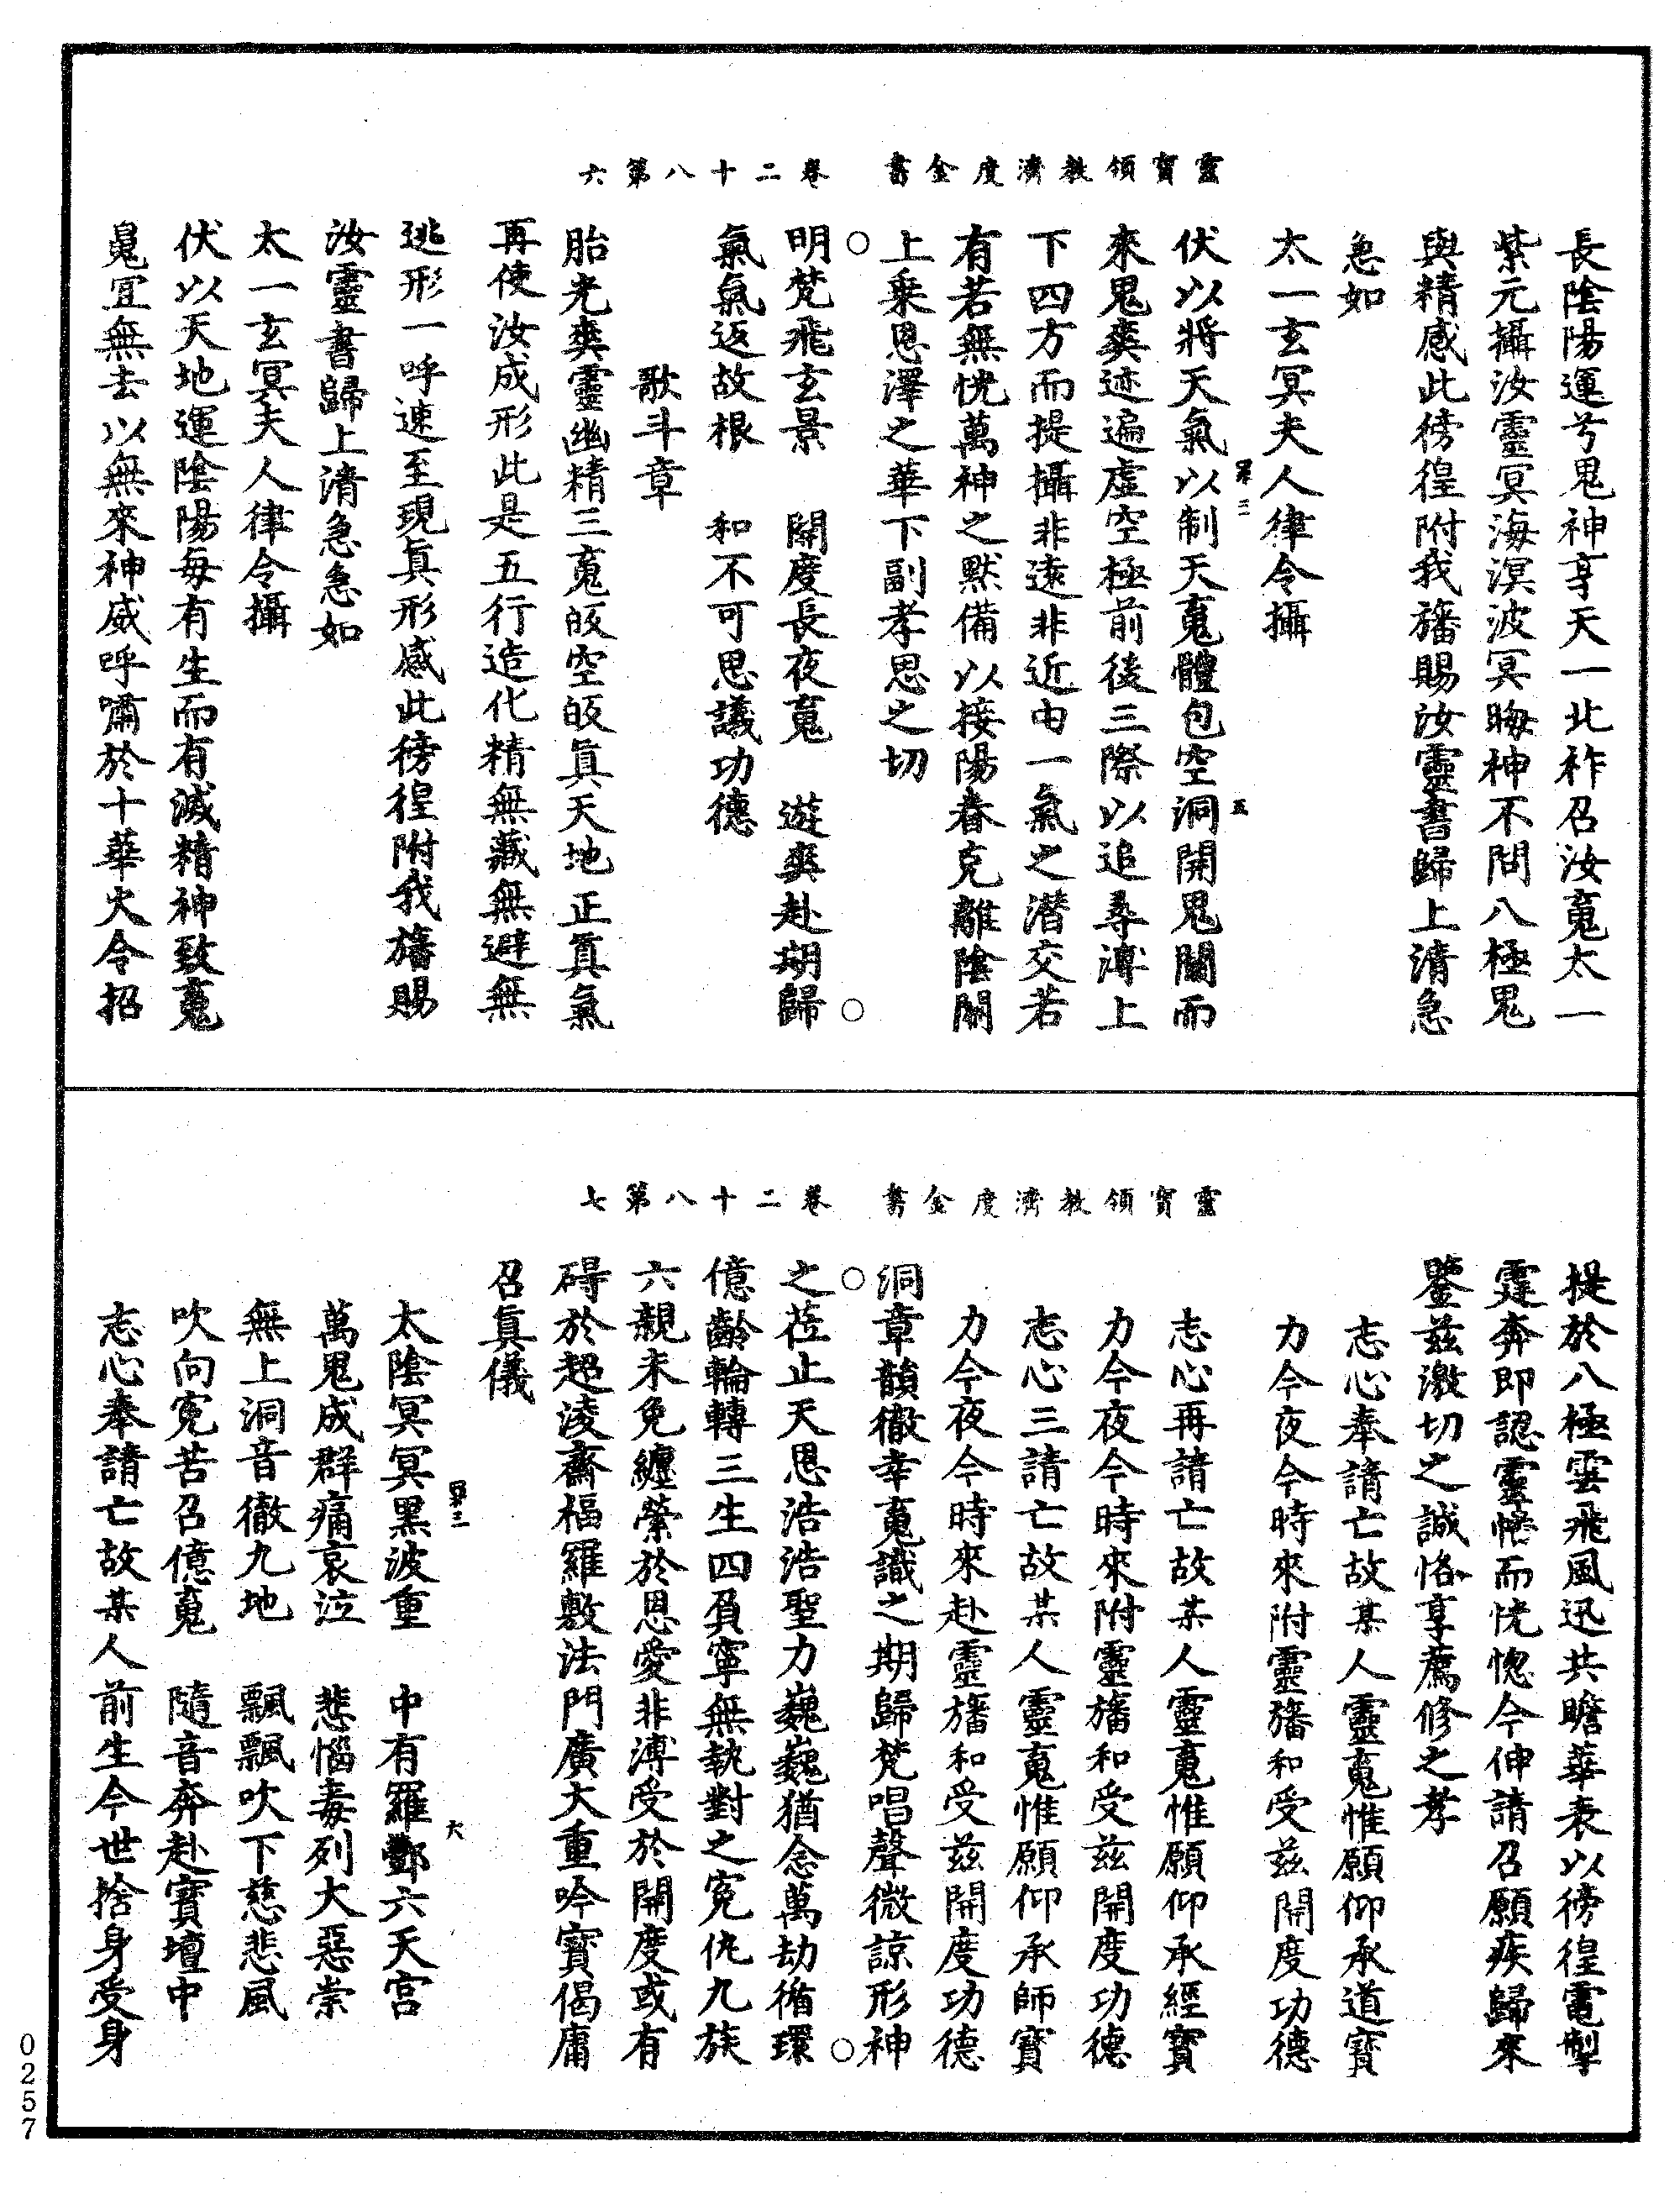 靈寶領教濟度金書　卷二十八第六
長陰陽運兮鬼神享天一北祚召汝䰟太一
紫元攝汝靈冥海溟波冥晦神不問八極鬼
與精感此徬徨附我旛賜汝靈書歸上清急
急如
太一玄冥夫人律令攝
伏以將天氣以制天䰟體包空洞開鬼關而
來鬼爽迹遍虛空極前後三際以追尋溥上
下四方而提攝非遠非近由一氣之潜交若
有若無恍萬神之默備以接陽春克離陰關
上乗恩澤之華下副孝思之切
明梵飛玄景　開度長夜䰟　遊爽赴期歸
氣氣返故根　和不可思議功德
歌斗章
胎光爽靈幽精三䰟皈空皈眞天地正眞氣
再使汝成形此是五行造化精無藏無避無
逃形一呼速至現眞形感此徬徨附我旛賜
汝靈書歸上清急急如
太一玄冥夫人律令攝
伏以天地運陰陽每有生而有滅精神致䰟
䰟宜無去以無來神威呼嘯於十華火令招
靈寶領教濟度金書　卷二十八第七
提於八極雲飛風迅共瞻華表以徬徨電掣
霆奔即認靈幡而恍惚今伸請召願疾歸來
鑒兹激切之誠恪享薦修之孝
志心奉請亡故某人靈䰟惟願仰承道寶
力今夜今時來附靈旛和受兹開度功德
志心再請亡故某人靈䰟惟願仰承經寶
力今夜今時來附靈旛和受兹開度功德
志心三請亡故某人靈䰟惟願仰承師寶
力今夜今時來赴靈旛和受兹開度功德
洞章韻徹幸䰟識之期歸梵唱聲微諒形神
之莅止天恩浩浩聖力巍巍猶念萬劫循環
億齡輪轉三生四負寧無執對之寃仇九族
六親未免纏縈於恩愛非溥受於開度或有
碍於超淩齋樞羅敷法門廣大重吟寳偈庸
召眞儀
太陰冥冥黑波重　中有羅酆六天宮
萬鬼成群痛哀泣　悲惱毒列大惡崇
無上洞音徹九地　飄飄吹下慈悲風
吹向寃苦召億䰟　隨音奔赴寳壇中
志心奉請亡故某人前生今世捨身受身
0257